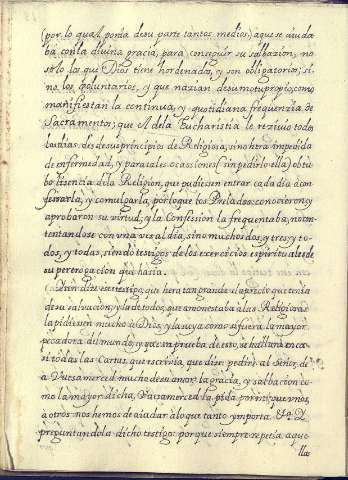 (por lo qual ponia de su parte tantos medios) aque se aiuda
ba con la divina gracia, para conseguir su salbazion; no
solo los que Dios tiene hordenados, y son obligatorios; si
no los voluntarios, y que nazian desu motu propio; como
manifiestan la continua, y quotidiana frequenzia de
Sacramentos; que el dela Eucharistia le rezivio todos
los dias desde sus principios de Religiosa, sino hera impedida
de enfermedad, y para tales ocassiones (sin pedirlo ella) obtu
bo lizencia dela Religion, que pudiesen entrar cada dia a con
fessarla, y comulgarla, porloque los Prelados conocieron, y
aprobaron su virtud; y la Confession la frequentaba, no con
tentandose con una vez al dia, sino muchos dos, y tres, y to
dos, y todas, siendo testigos de los exercicios espirituales de
su
que hazia.
Y dize este testigo, que hera tan grande el aprecio que tenia
de su salvazion, y la de todos, que amonestaba alas Religiosas
la pidiesen mucho a Dios, y la suya como si fuera la mayor
pecadora del mundo; y para en prueba de esto, se hallara en ca
si todas las Cartas que escrivia, que dize: pedire al Señor, de
a Vuesamerced mucho de su amor, la gracia, y salbacion co
mo la mayor dicha, Vuesamerced la pida por mi, que unos,
a otros nos hemos de aiudar a lo que tanto ymporta. Y
preguntandola dicho testigo: porque siempre repetia aque
lla